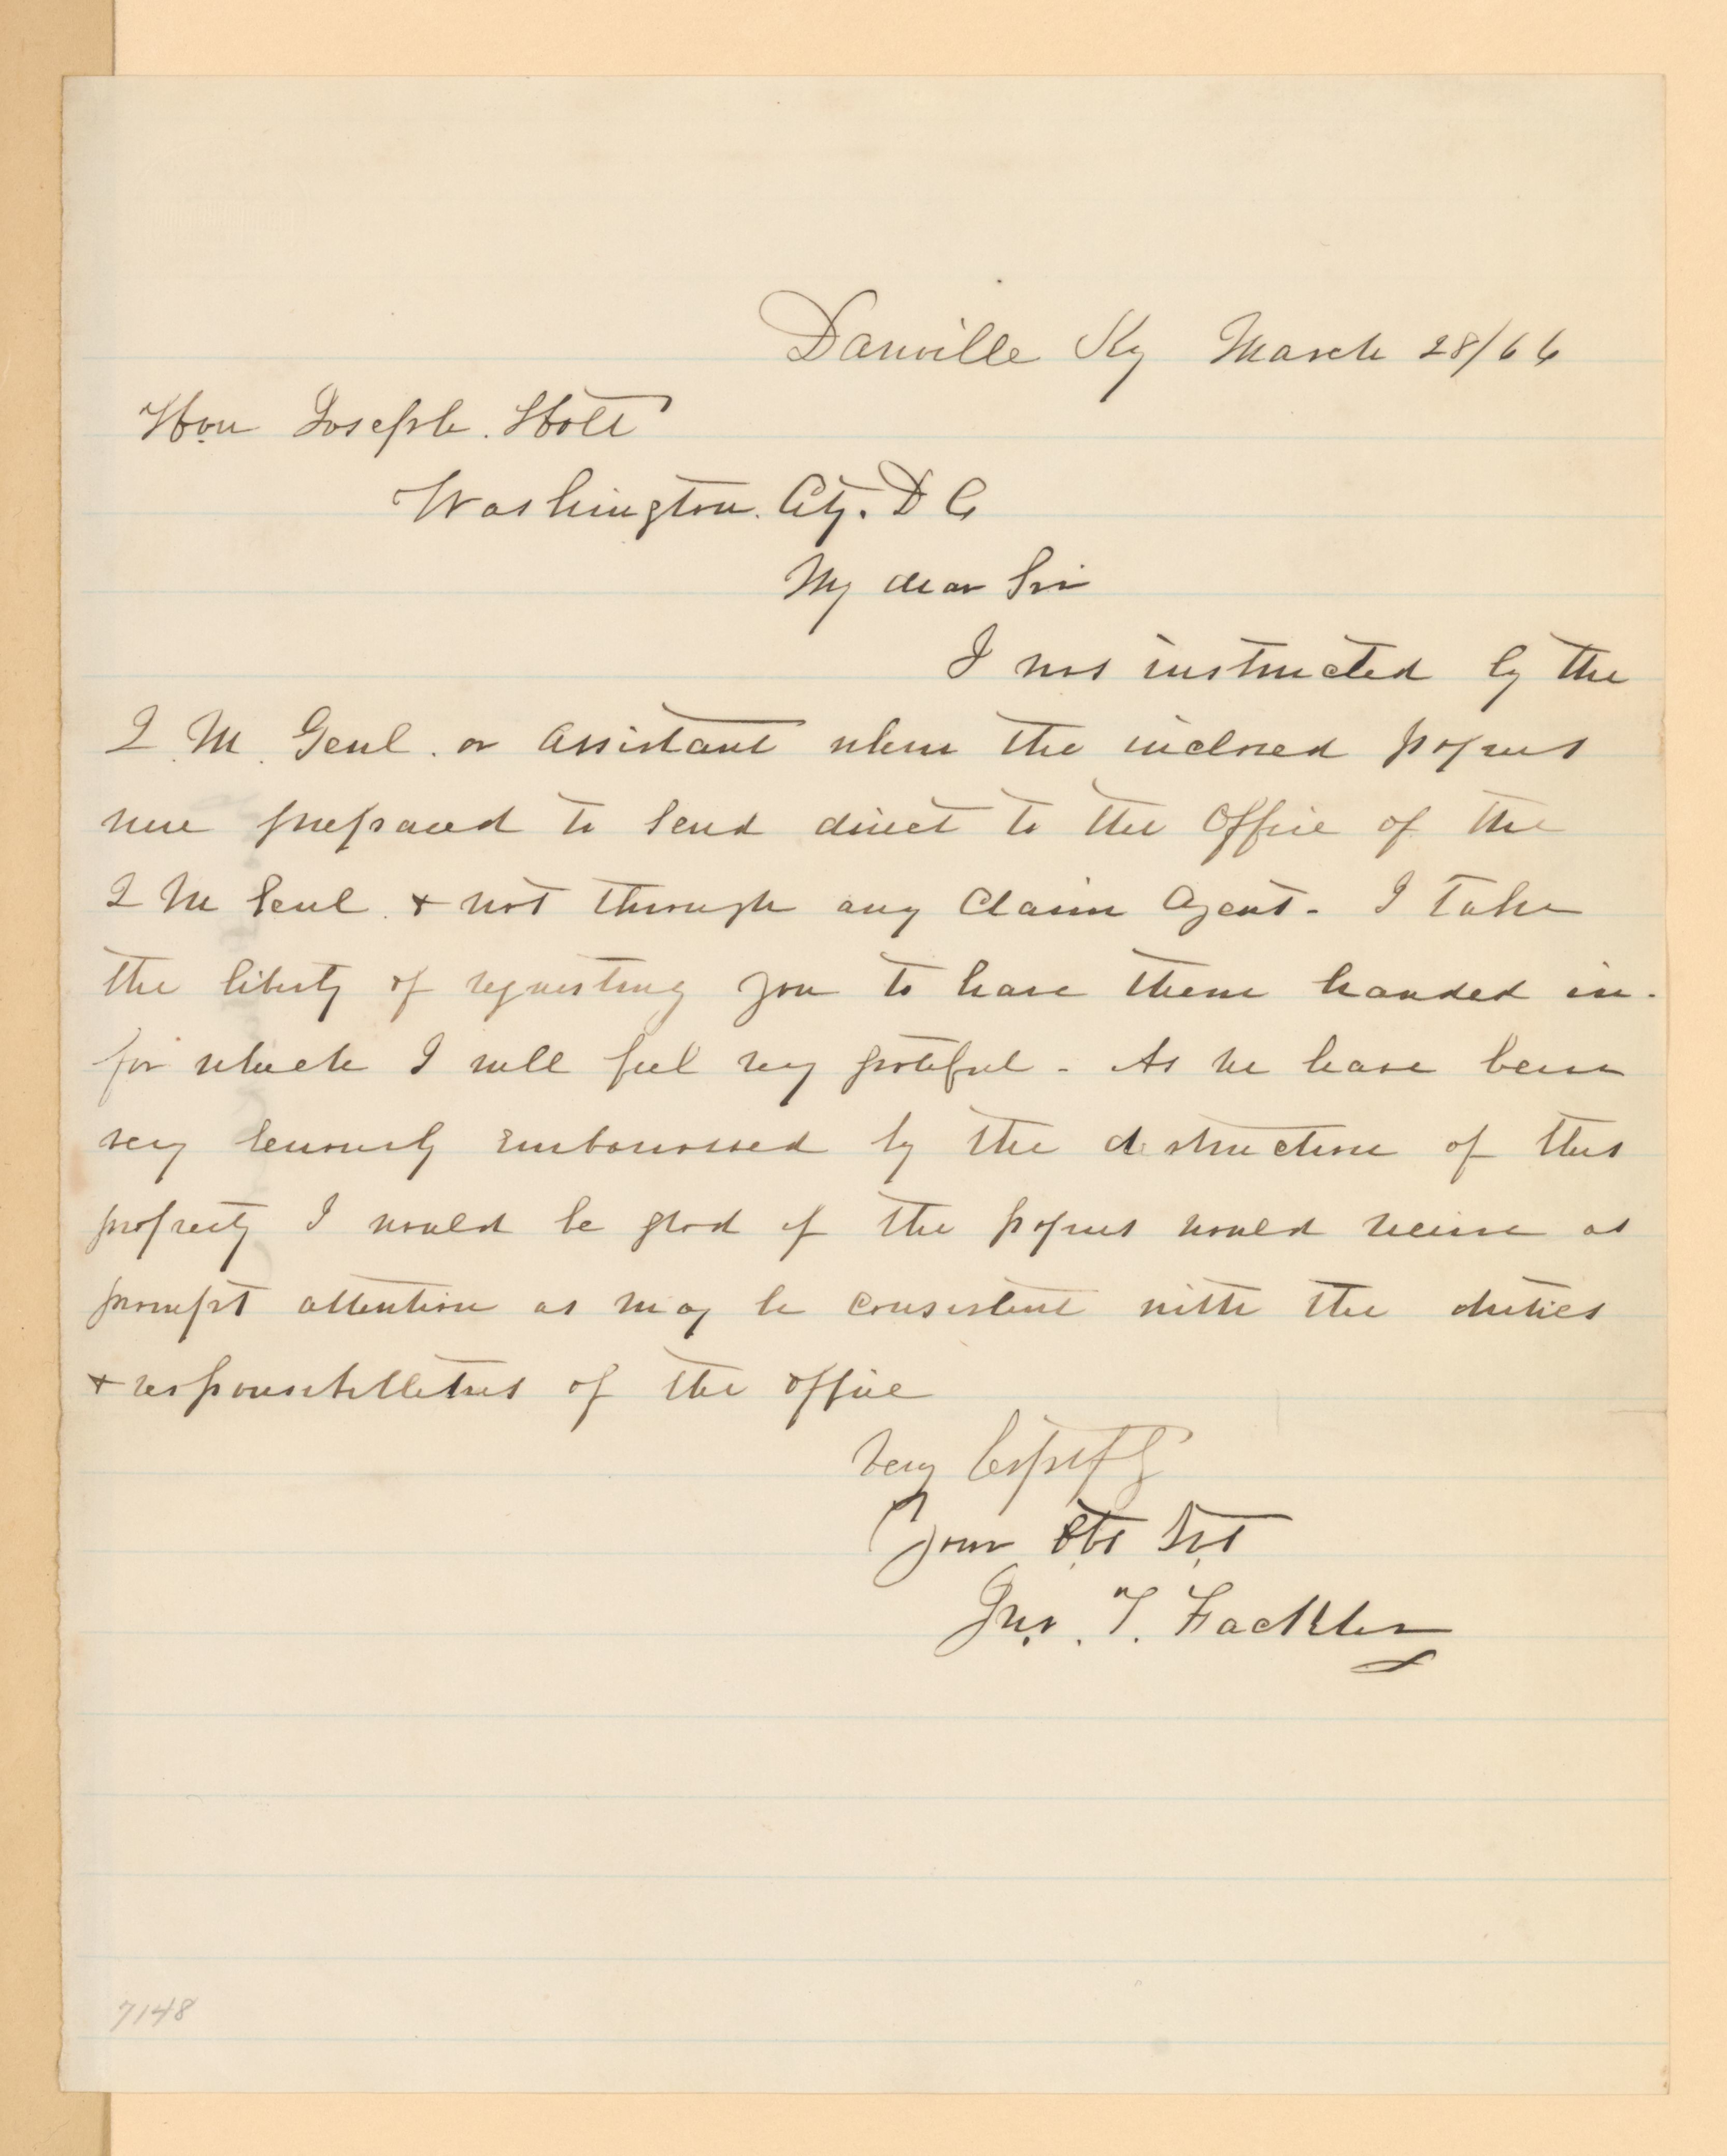 Danville Ky March 28/66
Hon Joseph. Holt
Washington. City. D C
My dear Sir
I was instructed by the
Q. M. Genl. or Assistant when the inclosed papers
were prepared to send direct to the Office of the
Q M Genl. & not through any Claim Agent - I take
the liberty of requesting you to have them handed in.
for which I will feel very grateful - As we have been
very seriously embarrassed by the destruction of this
property I would be glad if the papers would receive as
prompt attention as may be consistent with the duties
& responsibilities of the office
Very Respctfly
Your Obt Svt
Jno. T. Fackler
7148